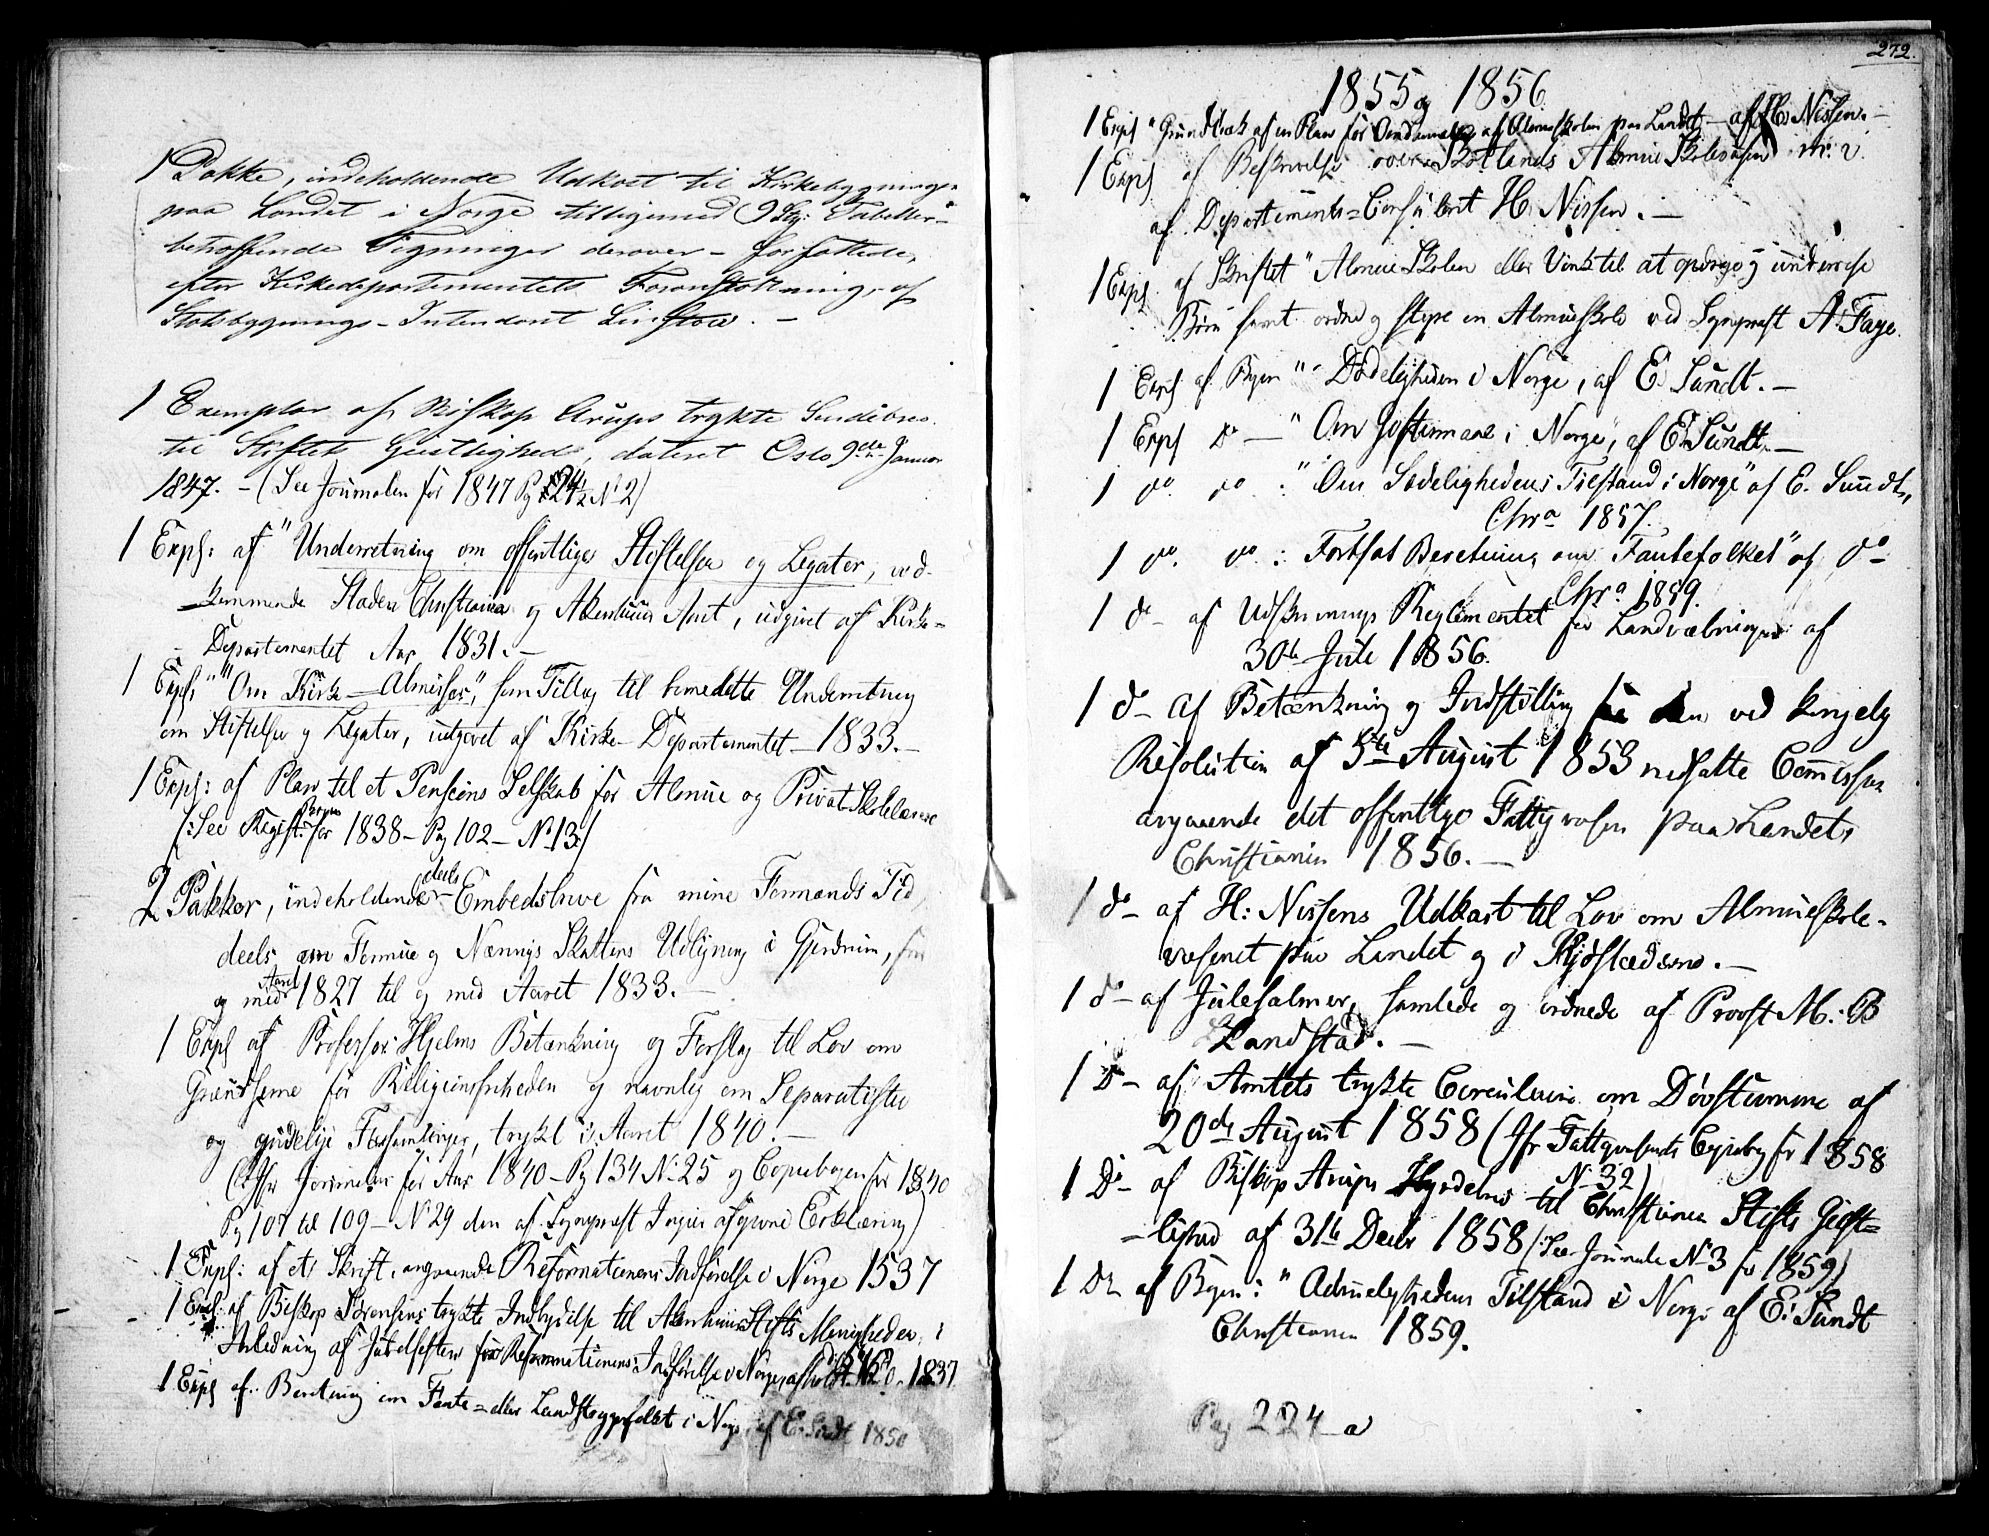 1 Pakke, indeholdende Udkast til Kirkebygninger
paa Landet i Norge tilligemed 9 Stk: Tabeller
betræffende Tegninger derover – forfattede,
efter Kirkedepartementets Foranstaltning, af
Slotsbygnings-Intendant Linstow. –
1 Exemplar af Biskop Arups trykte Sendebrev
til Stiftets Geistlighed, dateret Oslo 9de Januar
1847. – (See Journalen for 1847 Pag 124½ N: 2)
1 Expl: af "Underretning om offentlige Stiftelser og Legater, ved-
kommende Staden Christiania og Akershuus Amt, udgivet af Kirke-
Departementet Aar 1831. –
1 Expl: "Om Kirke-Almisser", som Tillæg til bemeldte Underretning
om Stiftelser og Legater, udgivet af Kirke-Departementet – 1833. –
1 Expl: af Plan til et Pensions Selskab for Almue og Privat Skolelærere
(:See Registr: for 1838 – Pag 102 – No 13:)
2 Pakker, indeholdende deels Embedsbreve fra mine Formænds Tid,
deels om Formue og Nærings Skattens Udligning i Gjerdrum, fra
og med Aaret 1827 til og med Aaret 1833. –
1 Expl af Professor Hjelms Betænkning og Forslag til Lov om
Grændserne for Religionsfriheden og navnlig om Separatister
og gudelige Forsamlinger, trykt i Aaret 1840. –
(Cfr Journalen for Aar 1840 – Pag 134 N: 25 og Copiebogen for 1840
Pag 107 til 109 – N: 29 den af Sognepræst Ingier afgivne Erklæring)
1 Expl: af et Skrift, angaaende Reformationens Indførelse i Norge 1537
1 Expl: af Biskop Sørensens trykte Indbydelse til Akershuus Stifts Menigheder, i
Anledning af Jubelfesten for Reformationens Indførelse i Norge, afholdt 1837
1 Expl af Beretning om Fante- eller Landstrygerfolket i Norge, af E. Sundt 1850
272.
1855 og 1856
1 Expl "Grundtræk af en Plan for Omdannelse af Almueskolen paa Landet – af H. Nissen. –
1 Expl af Beskrivelse over Skotlands Almue Skolevæsen m: v.
af Departements-Consulent H. Nissen. –
1 Expl. af Skriftet "Almue Skolen eller Vink til at opdrage og undervise
Børn samt ordne og styre en Almueskole ved Sognepræst A: Faye.
1 Expl af Bogen "Dødeligheden i Norge, af E. Sundt. –
1 Expl Do – "Om Giftermaal i Norge", af E. Sundt. –
1 do. do : "Om Sædelighedens Tilstand i Norge" af E. Sundt,
Chra 1857.
1 do. do. : Fortsat Beretning om Fantefolket" af do –
Chra 1859.
1 do – af Udskrivnings Reglementet for Landværnet af
30te Jule 1856.
1 do – af Betænkning og Indstilling fra den ved kongelig
Resolution af 5te August 1853 nedsatte Commission
angaaende det offentlige Fattigvæsen paa Landet,
Christiania 1856. –
1 do – af H: Nissens Udkast til Lov om Almueskole-
væsenet paa Landet og i Kjøbstæderne. –
1 do – af Julesalmer, samlede og ordnede af Provst M: B
Landstad. –
1 Do – af Amtets trykte Circulaire om Døvstumme af
20de August 1858 (Cfr Fattigvæsenets Copiebog for 1858
N: 32)
1 Do – af Biskop Arups Hyrdebrev til Christiania Stifts Geist-
lighed af 31te Decbr 1858 (:See Journale N: 3 for 1859)
1 Do af Bogen: "Ædrueligheds Tilstand i Norge af E: Sundt
Christiania 1859.
Pag 224 a